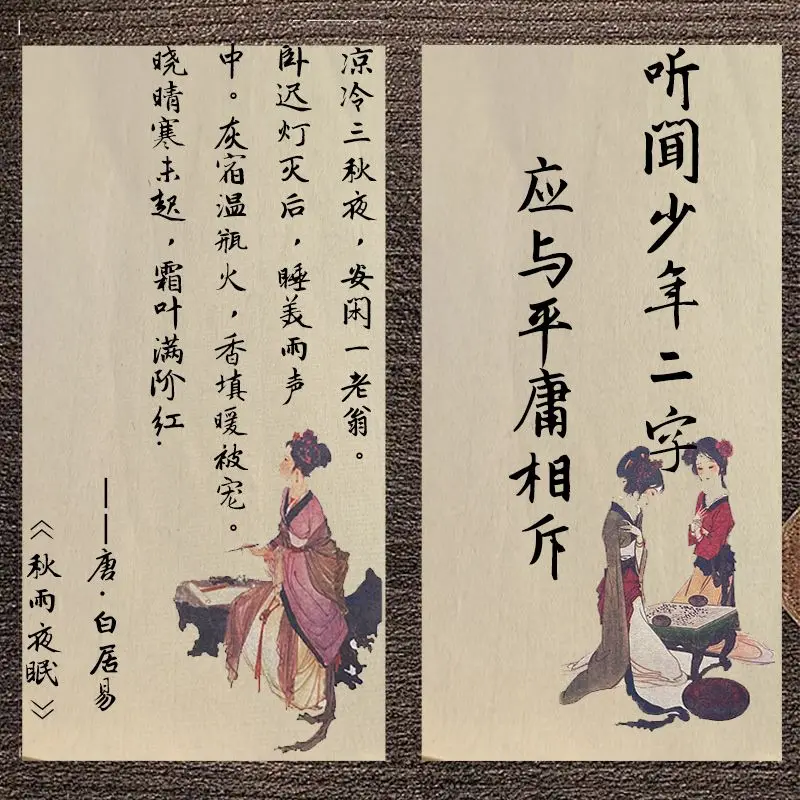 凉冷三秋夜，安闲一老翁。
卧迟灯灭后，睡美雨声
中。灰宿温瓶火，香填暖被宠。
晓晴寒未起，霜叶满阶红.
——唐·白居易
《秋雨夜眠》
听聞少年二字
应与平庸相斥